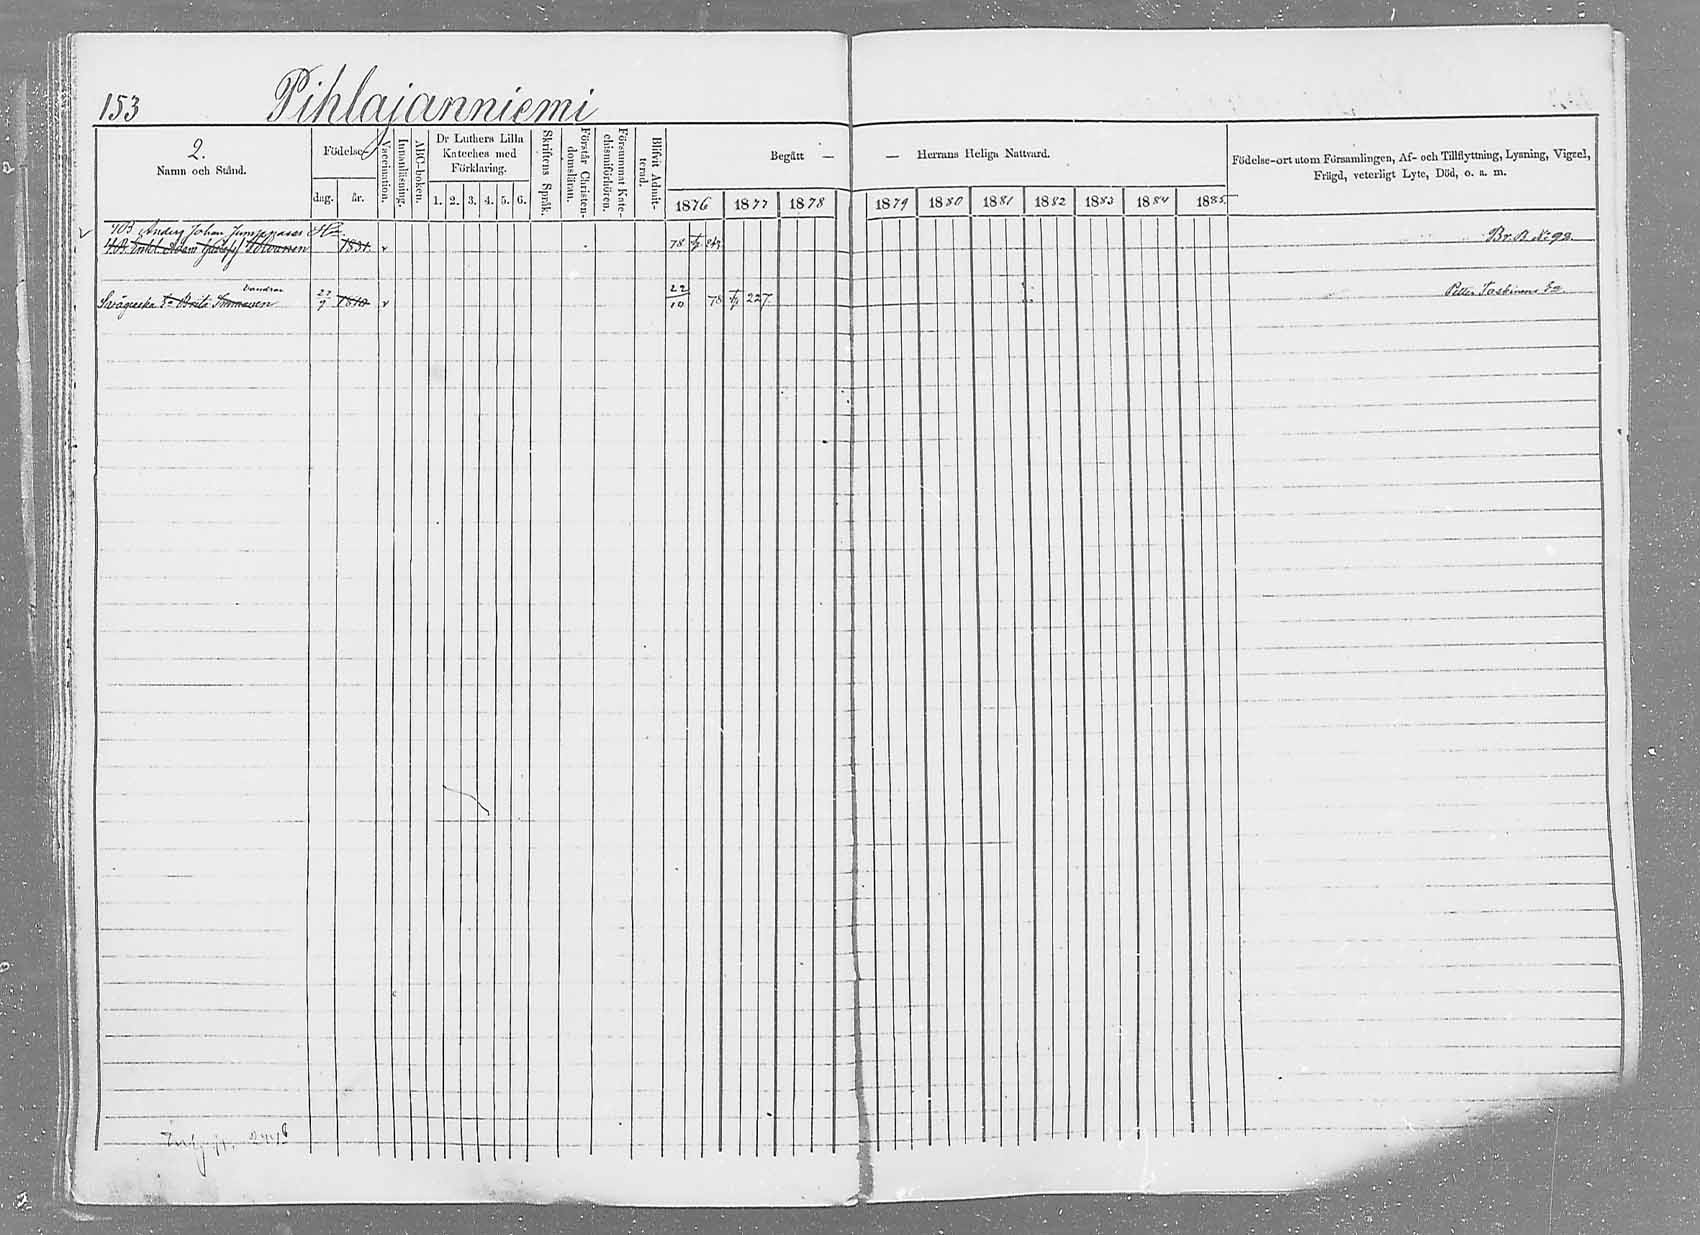 153 Pihlajanniemi
2.
Namn och Stånd.
Födelse-
dag.
år.
Vaccination.
Innanläsning.
ABC-boken.
Dr Luthers Lilla
Kateches med
Förklaring.
1. 2. 3. 4. 5. 6.
Skriftens Språk.
Förstår Christen-
domsläran.
Försummat Kate-
chismiförhören.
Blifvit Admit-
terad.
Begått —
— Herrans Heliga Nattvard.
1876 1877 1878 1879 1880 1881 1882 1883 1884 1885
Födelse-ort utom Församlingen, Af- och Tillflyttning, Lysning, Vigsel,
Frägd, veterligt Lyte, Död, o. a. m.
Anders Johan
1831. v 78 Br. B. No 92.
Svägerska Brita 22/9 1810 v 22/10 78 227 Petter